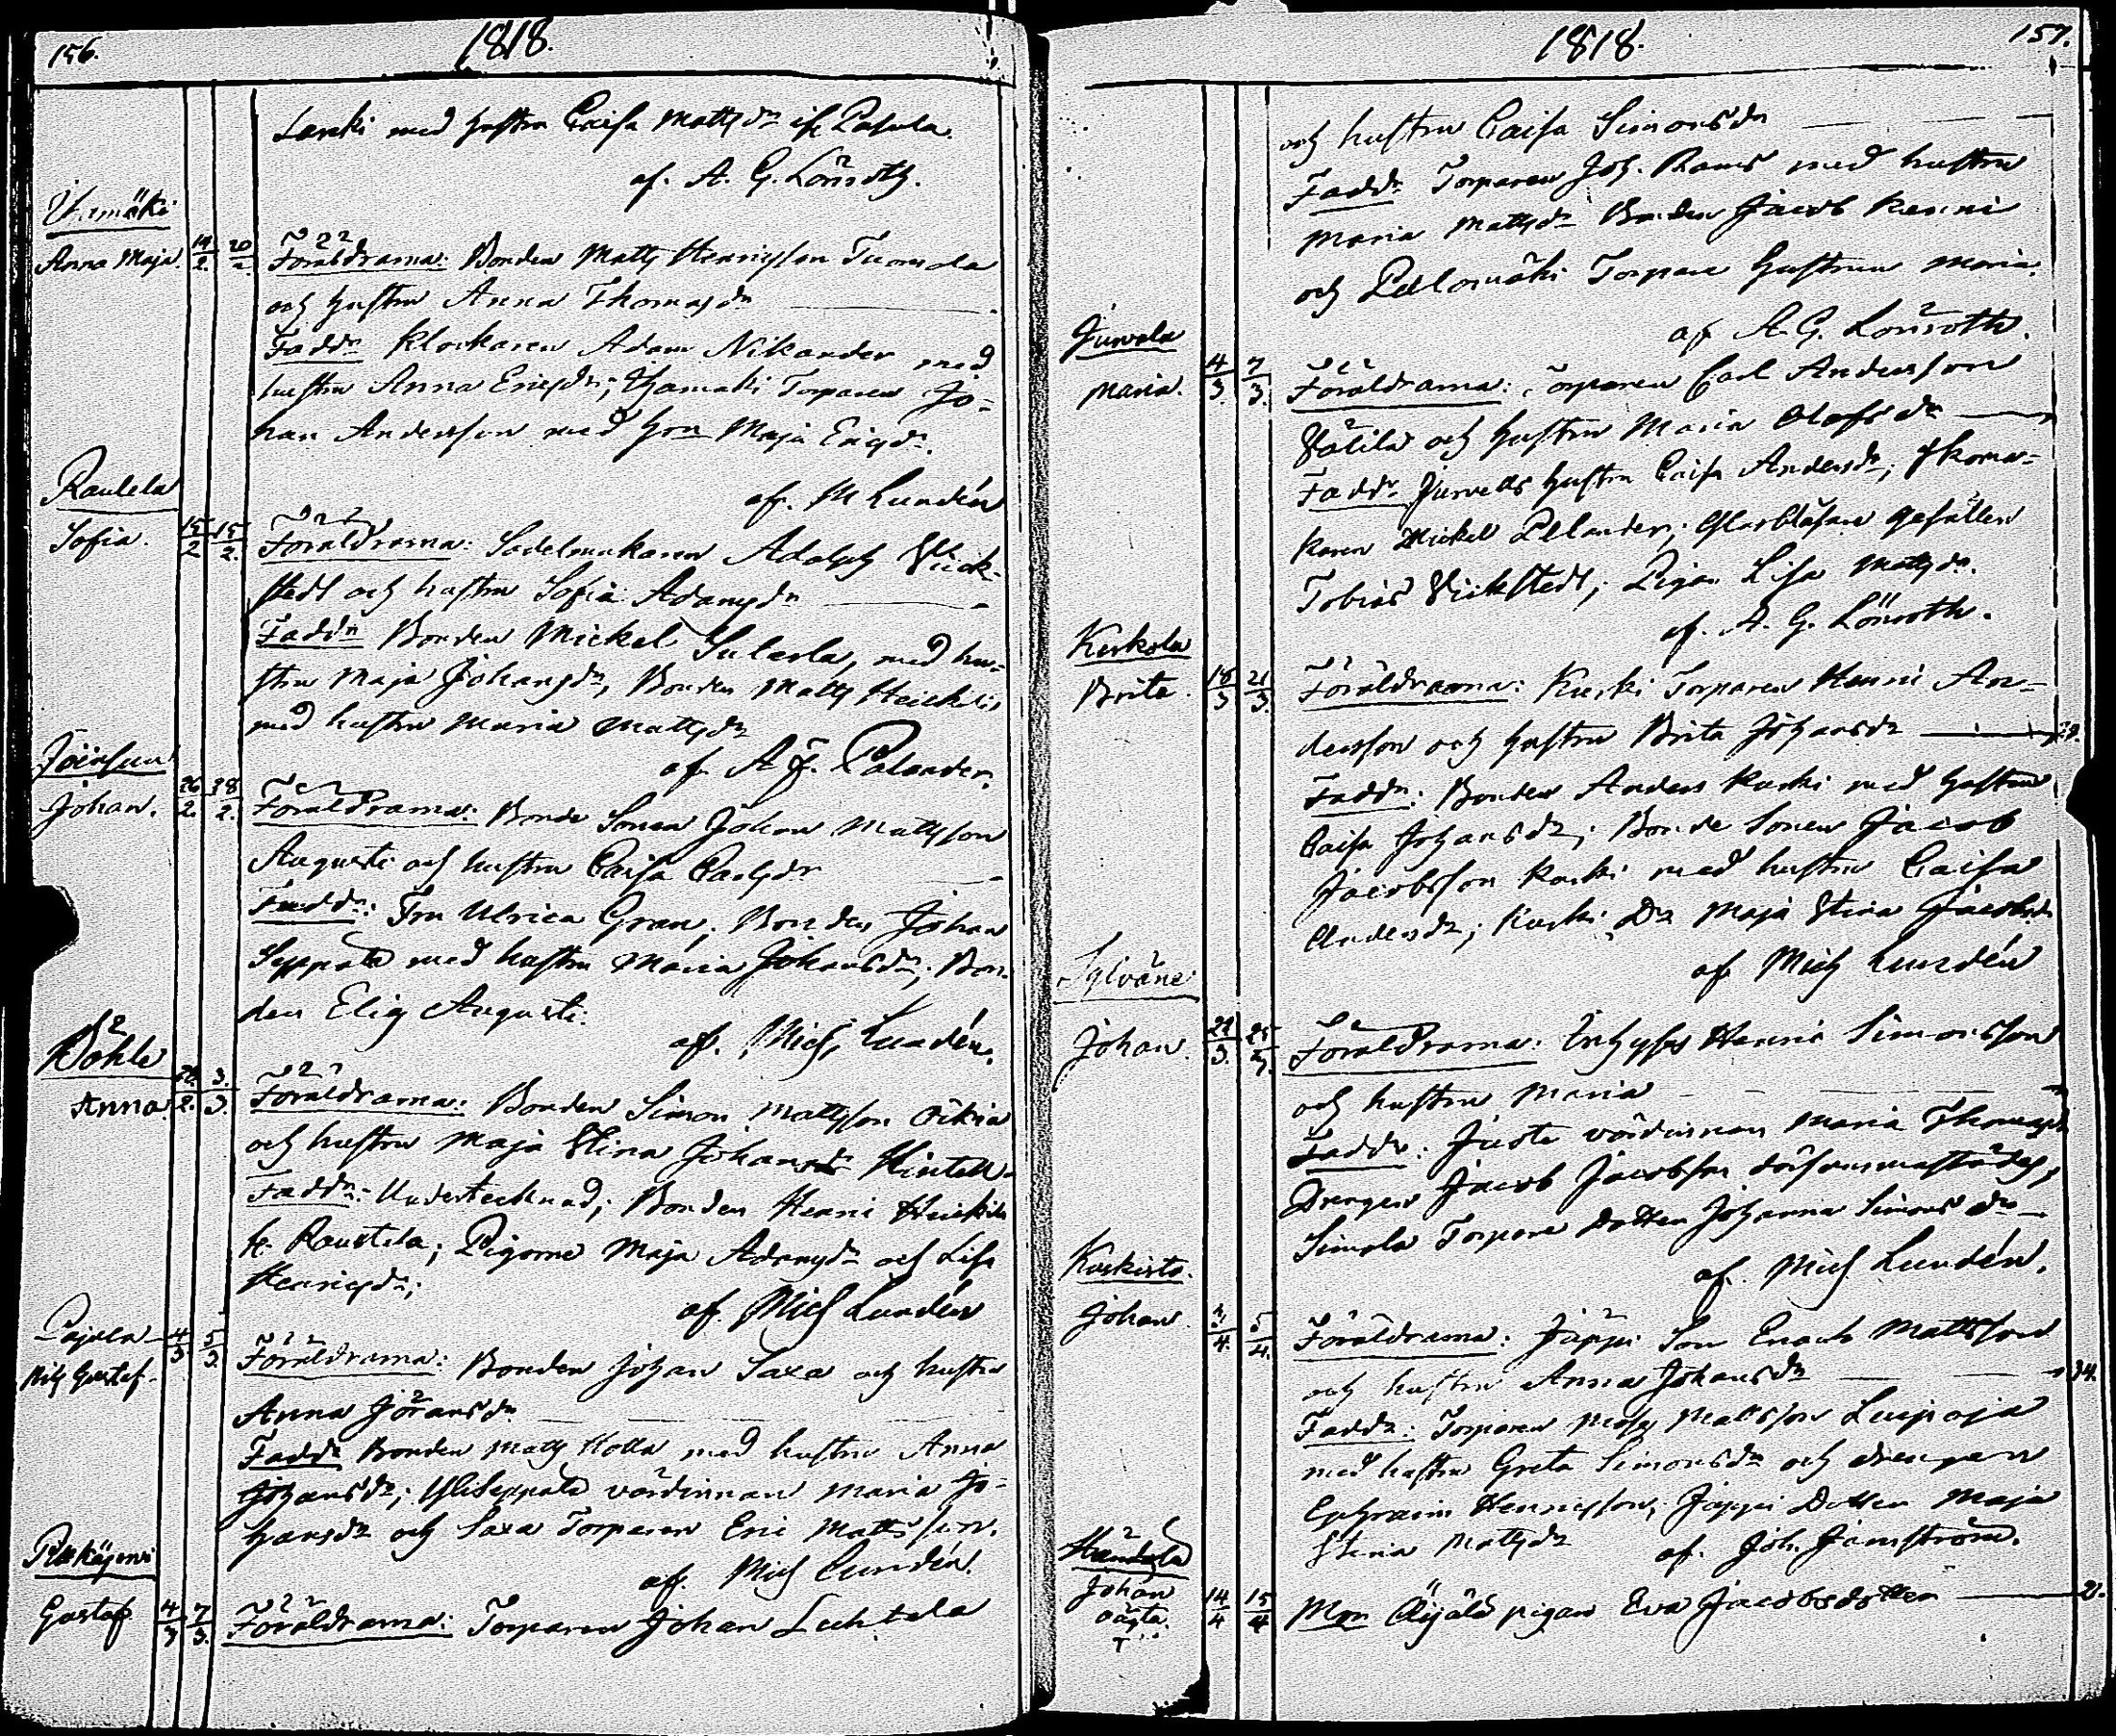 156.
1818.
Laski med hustru Caisa Mattsdr
af. A. G. Lönroth.
Anna Maja. 19/2 20/2 Föräldrarna: Bonden Matts Henricsson Tuomola
och hustru Anna Thomasdr
Faddr Klockaren Adam Nikander med
hustru Anna Ericsdr; Torparen Jo-
han Andersson med Hon Maja Ericsdr.
af. M Lundén
Raulela
Sofia. 15/2 15/2 Föräldrarna: Sadelmakaren Adolph Vick-
stedt och hustru Sofia Adamsdr
Faddr Bonden Mickel Sulerla, med hu-
stru Maja Johansdr, Bonden Matts Heickilä
med hustru Maria Mattsdr
af A. J. Palander.
Johan. 26/2. 28/2. Föräldrarna: Bonde Sonen Johan Mattsson
Augusti och hustru Caisa Carlsdr
Faddr: Fru Ulrica Gran; Bonden Johan
Seppälä med hustru Maria Johansdr; Bon-
den Elig Augusti.
af. Mich. Lundén.
Anna 28/2. 3/3. Föräldrarna: Bonden Simon Mattsson
och hustru Maja Stina Johansdr
Faddr: Undertecknad; Bonden Henric Heickilä
fr. Raustela; Pigorne Maja Adamsdr och Lisa
Henricsdr;
af. Mich Lundén
Pajula 4/3 5/3. Föräldrarna: Bonden Johan Saxa och hustru
Nils Gustaf.
Anna Göransdr
Faddr Bonden Matts Holla med hustru Anna
Johansdr; Yliseppälä värdinnan Maria Jo-
hansdr och Saxa Torparen Eric Mattsson.
af. Mich Lundén.
Gustaf 4/3 7/3. Föräldrarna: Torparen Johan Lehtela
1818.
157.
och hustru Caisa Simonsdr
Faddr Torparen Joh. Rams med hustru
Maria Mattsdr Bonden Jacob
och Pellomäki Torpare Hustrun Maria.
af A. G. Lönroth.
Jurvala
Maria. 4/3. 7/3. Föräldrarna: Torparen Carl Andersson
Välilä och hustru Maria Olofsdr
Faddr Jurvalls hustru Caisa Andersdr; Skoma-
karen Mickel Pelander; Glasblåsare gesällen
Tobias Vickstedt; Pigan Lisa Mattsdr.
af. A. G. Lönroth.
Kerkola
Brita. 18/3 21/3. Föräldrarna: Kurki Torparen Henric An-
dersson och hustru Brita Johansdr 29.
Faddr: Bonden Anders Kurki med hustru
Caisa Johansdr; Bonde Sonen Jacob
Jacobsson Kurki med hustru Caisa
Andersdr; Kurki Dr Maja Stina Jacobsdr
af Mich Lundén
Sylväne
Johan. 22/3. 25/3. Föräldrarna: Inhyses Henric Simonsson
och hustru Maria
Faddr: Juste värdinnan Maria Thomasdr
Drengen Jacob Jacobsson
Simola Torpare dotter Johanna Simonsdr
af. Mich Lundén.
Kuskisto.
Johan. 3/4. 5/4. Föräldrarna: Jäppi Son Enoch Mattsson
och hustru Anna Johansdr 34.
Faddr: Torparen Matts Mattsson Luipaja
med hustru Greta Simonsdr och drengen
Ephraim Henricsson; Jäppi Dotter Maja
Stina Mattsdr af. Joh. Jernström.
Handela
Johan
oäkta. 14/4 15/4 Mor Äijälä pigan Eva Jacobsdotter 21.